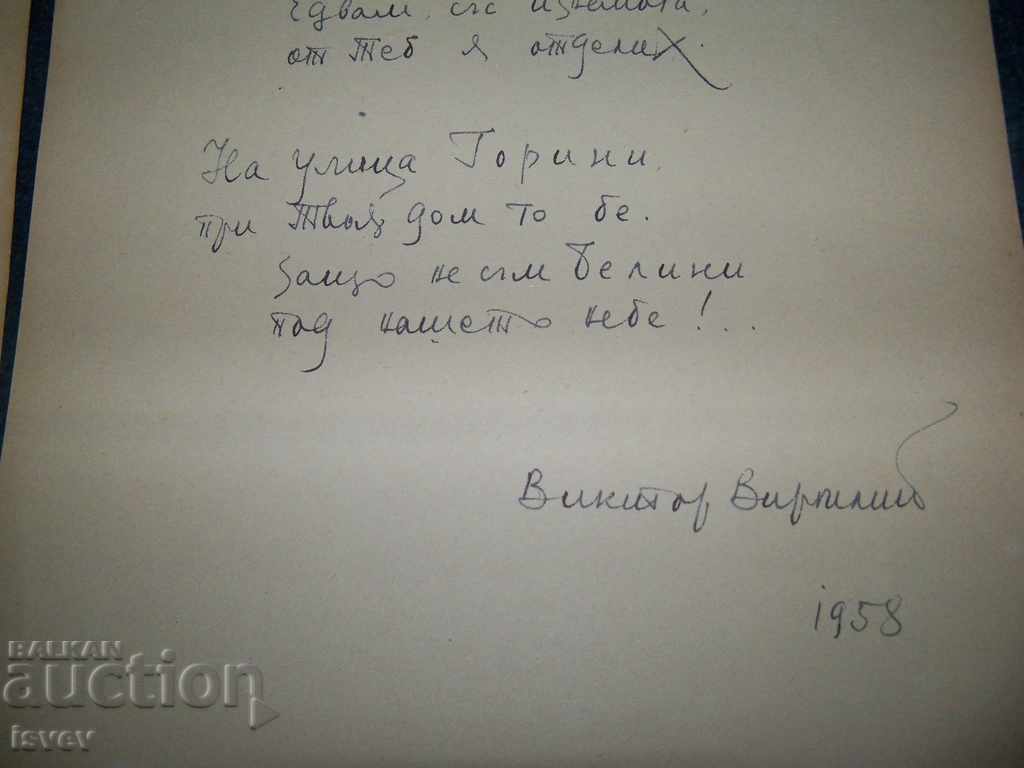 Едвам, със измамата,
от Теб я отделих.
На улица Горини
при Твоя дом то бе.
Защо не съм Белини
под нашето небе!...
Виктор Виргилиев
1958
BALKAN
auction
isvev